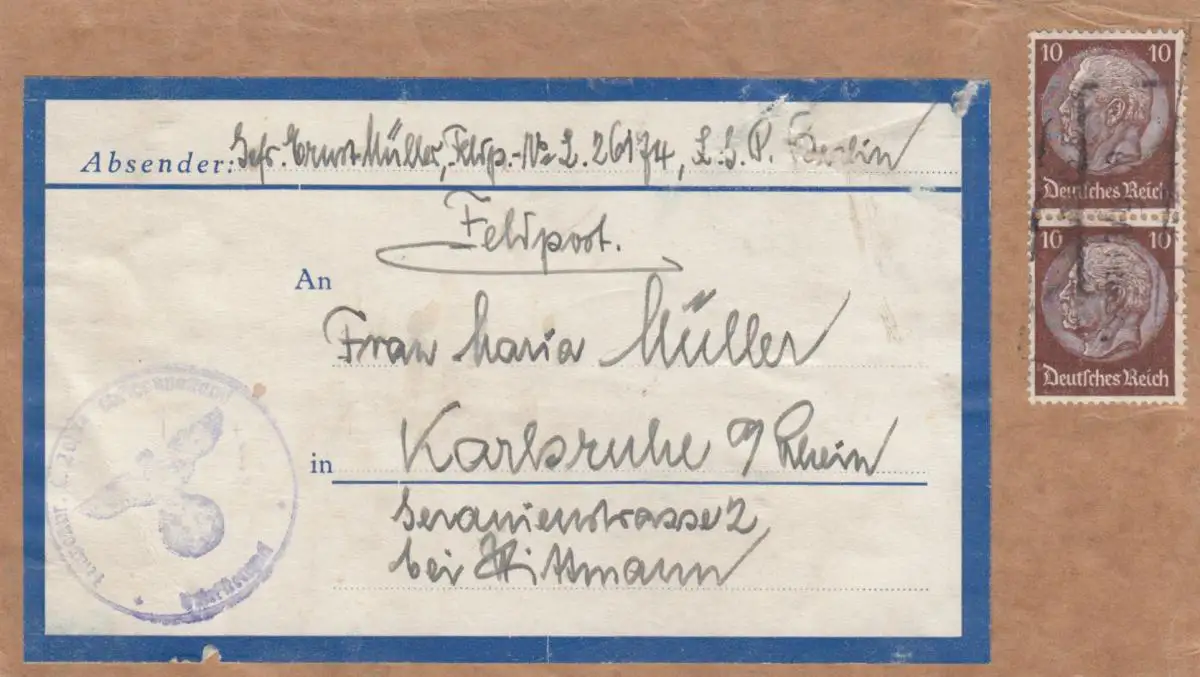 Absender: Gefr. Ernst Müller, Feldp.-№ L. 26174, L.G.P. Berlin
Feldpost.
An
Frau Maria Müller
in Karlsruhe a/Rhein
Geranienstrasse 2
bei Wittmann
10 10
Deutsches Reich
10 10
Deutsches Reich